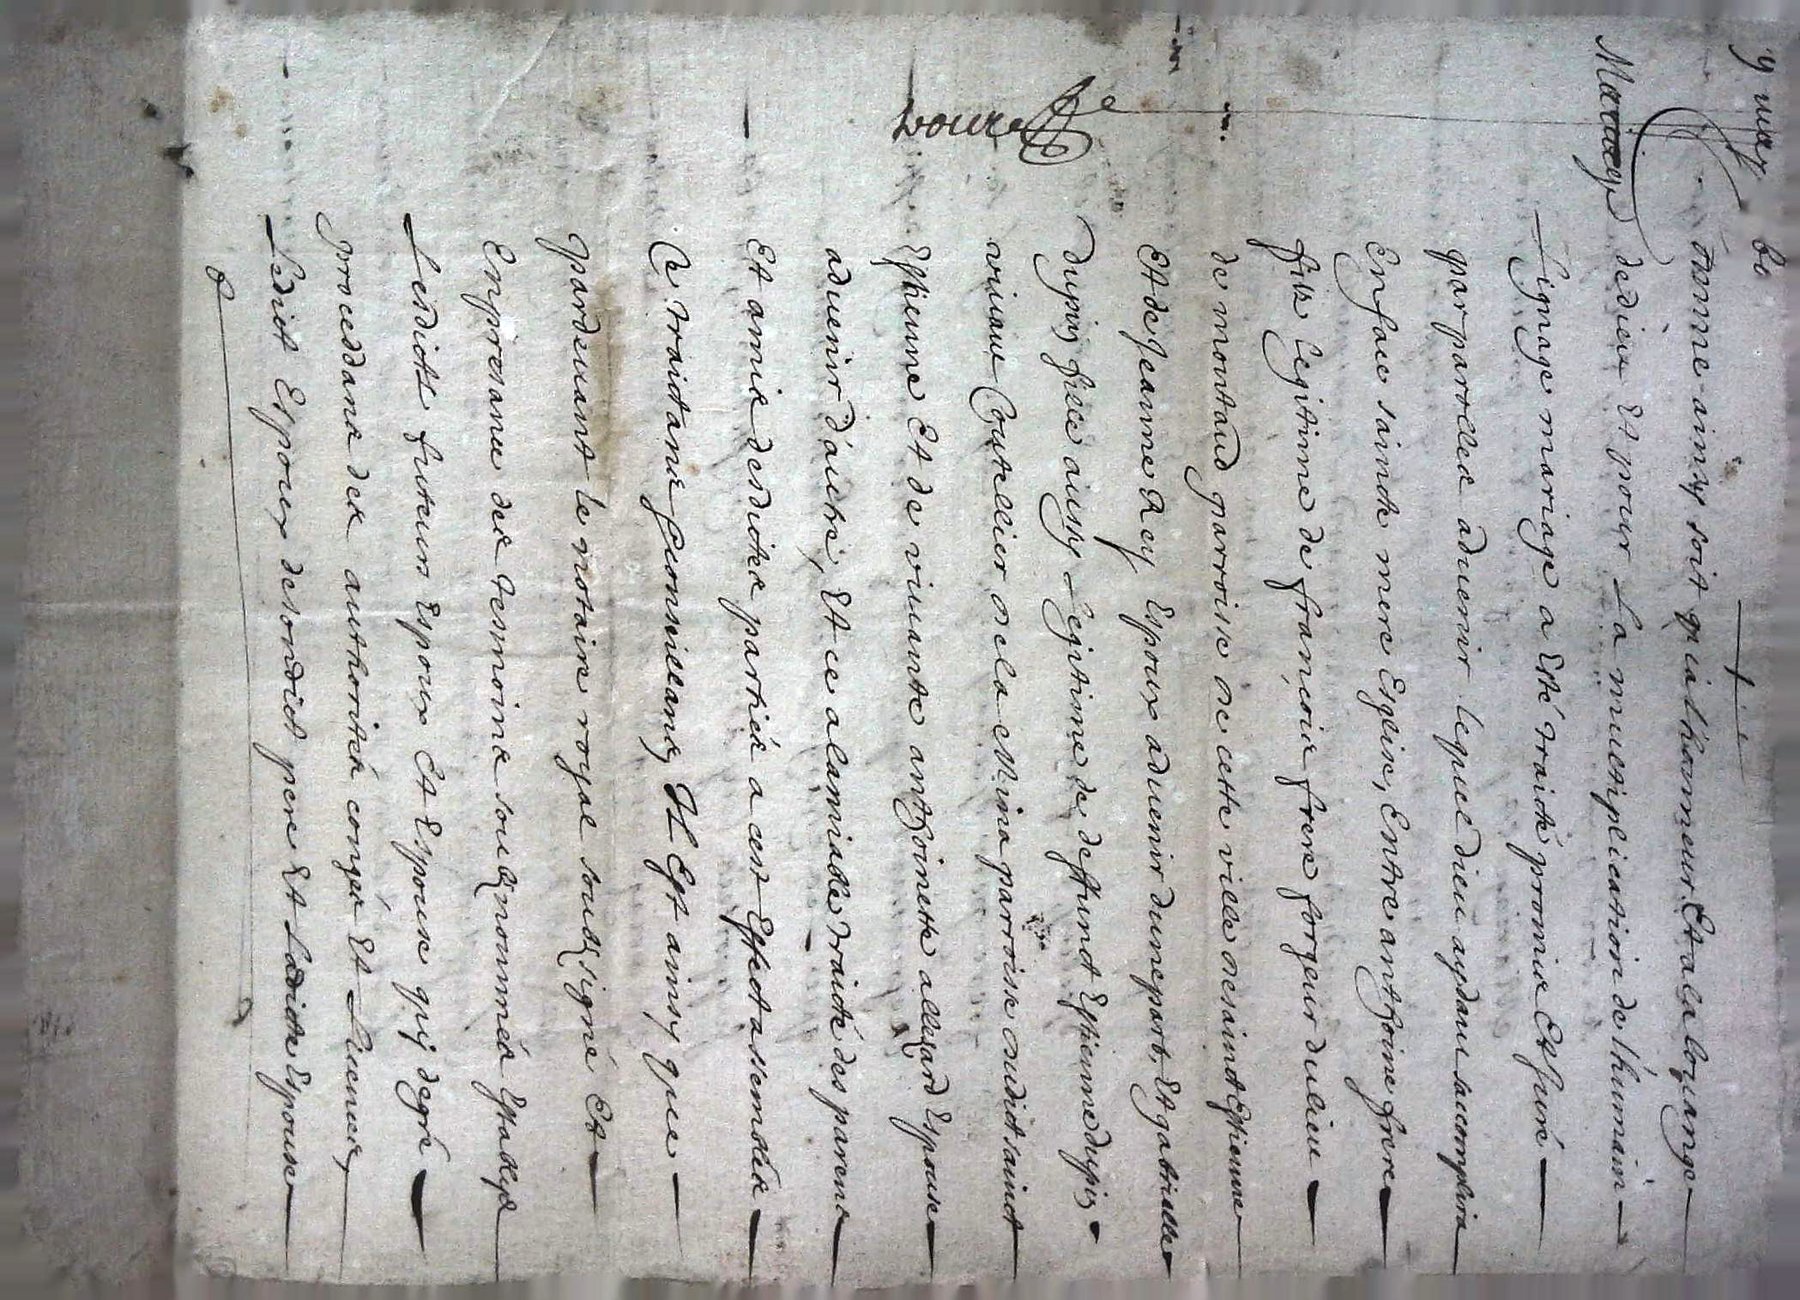 9 may
Mariage
Comme ainsy soit qu'a lhonneur Et a la louange
de dieu Et pour La multiplication de lhumain
Lignage mariage a Esté traité promis Et juré
par parolles aduenir lequel dieu aydant saccomplira
En face sainte mere Esglise, Entre anthoine frere
filz legitime de francois frere forgeur du lieu
de montaud parroisse de cette ville de saint Estienne
Et de Jeanne Rey Espoux aduenir dune part, Et gabrielle
Dupin fille aussy Legitime de deffunct Estienne dupin
viuant Coutellier de la parroisse dudict sainct
Estienne Et de viuante anthoinette allegard Espouse
aduenir d'autre, Et ce a lamiable traité des parens
Et amis desdites parties a cest Effect assemblés
Ce traitant Conseillant, Il Est ainsy que
pardeuant le notaire royal soubzsigné Et
En presance des tesmoins soubz nommés Establys
Lesdicts futeurs Espoux Et Espouse quy de gré
proceddans des authorités congés Et Licences,
Ledict Espoux de sondict pere Et Ladicte Espouse